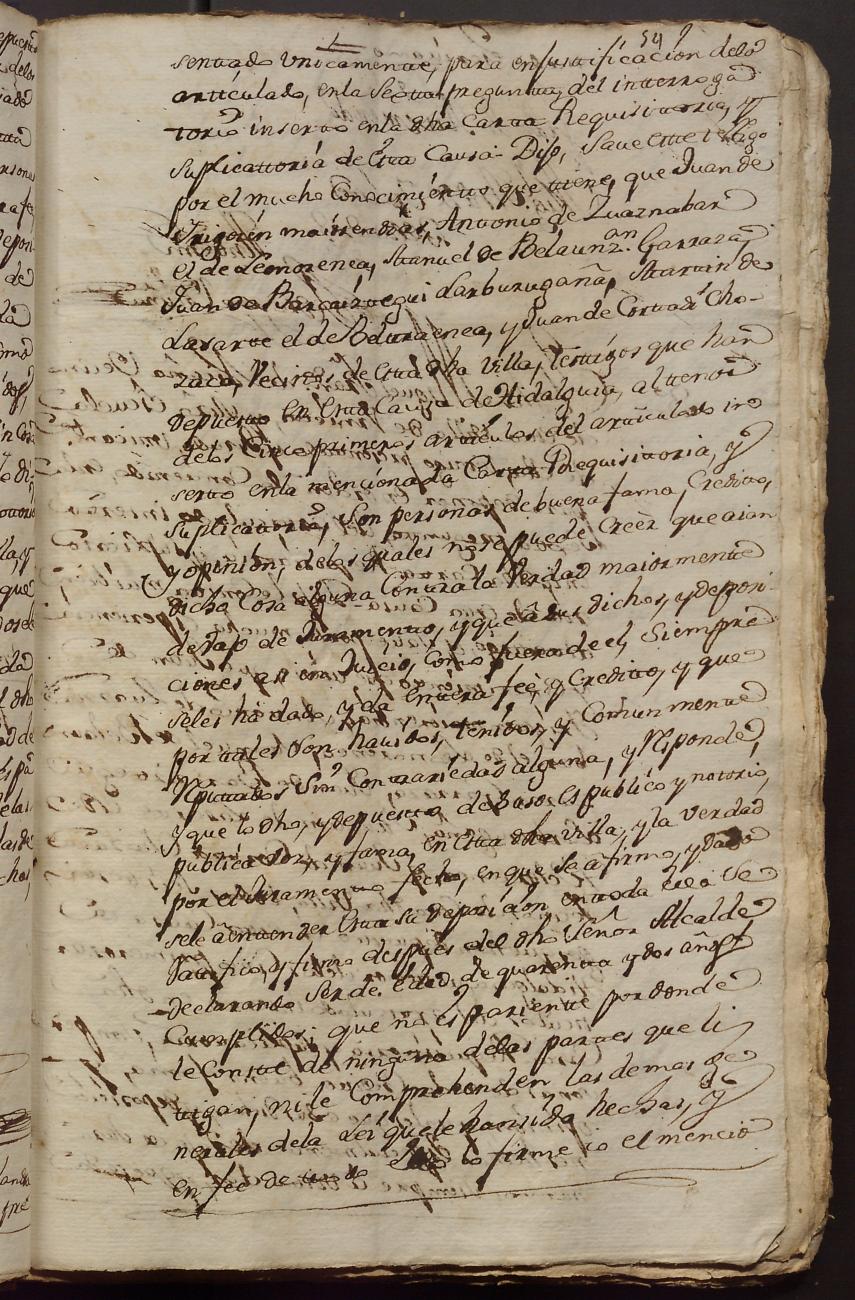 54
sentado unicamente, para en justificacion delo
artticulado, enla Sexta pregunta, del intterroga
torio insertto enla dha Cartta Requisitoria, y
Suplicattoria de Esta Causa Dijo, Save este testigo
por el mucho Conocimiento que tiene, que Juan de
Antonio de Zuaznabar
el de Lemorenea, Manuel de Garraza,
Juan de Larburugaña, Martin de
Lasarte el de Aduraenea, y Juan de Cho-
Vecinos de Esta dha Villa, testigos que han
depuesto En Esta Causa de Hidalguia, al tenor
delos Cinco primeros artticulos del artticulado in
serto enla mencionada Cartta Requisittoria, y
Suplicattoria, Son personas de buena fama, Creditto,
y opinion, delos quales no se puede Creer que aian
dicho Cosa alguna Contra la Verdad maiormente
devajo de Juramento, y que â sus dichos, y deposi-
ciones asi en Juicio, Como fuera de el Siempre
seles ha dado, y da Enttera feé, y Creditto, y que
por tales Son havidos, tenidos, y Comunmente
Reputtados Sin Contrariedad alguna, y Responde,
y que lo dho, y depuesto de Suso Es publico y notorio,
publica voz, y fama, en Esta dha Villa, y la verdad
por el Juramento fecho, en que Se afirmo, y dado
sele â entender Esta Su deposicion en toda Se
Ratifico, y firmo despues del dho Señor Alcalde
declarando Ser de Edad de quarenta y dos años
Cumplidos; que no es pariente por donde
le Conste de ninguna delas partes que li
tigan, ni le Comprehenden las demas ge
nerales dela Lei que le han sido hechas, y
en feé de lo firme io el mencio